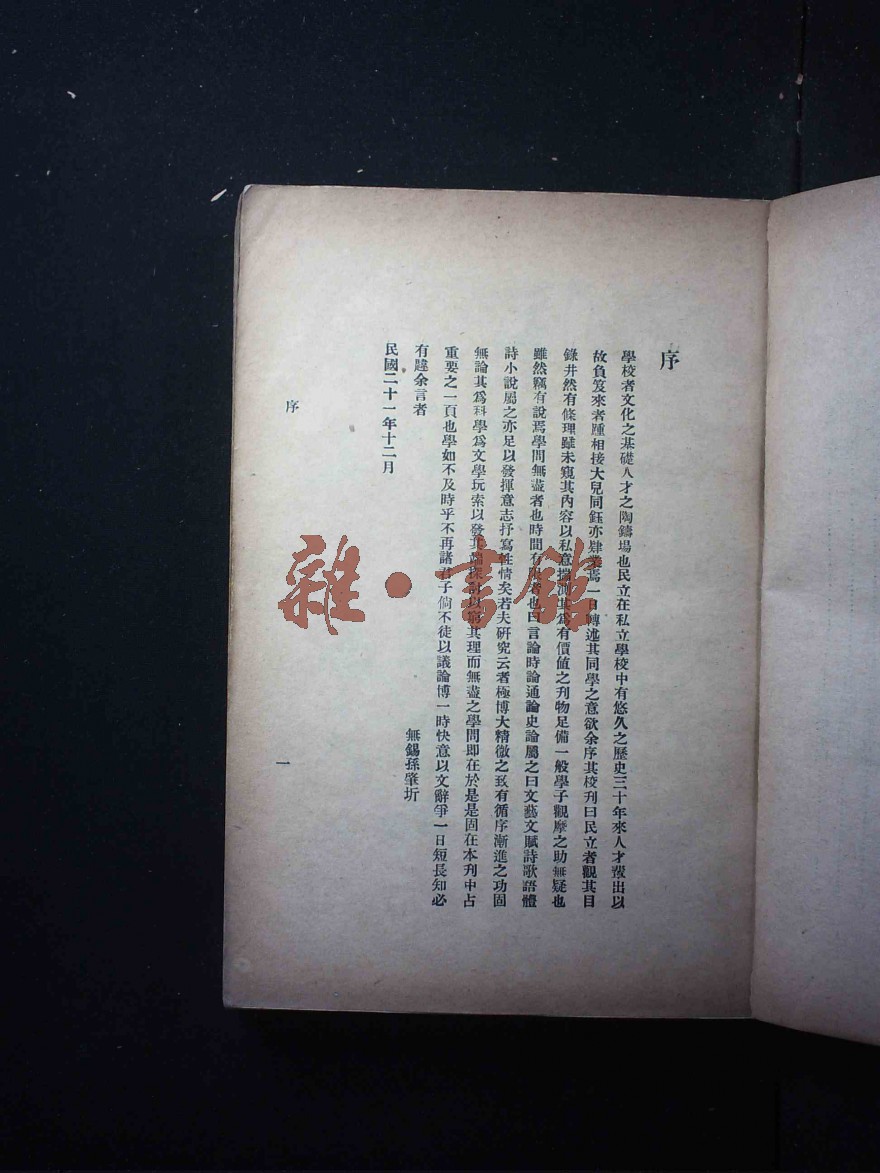 序
學校者文化之基礎人才之陶鑄場也民立在私立學校中有悠久之歷史三十年來人才輩出以
故負笈來者踵相接大兒同鈺亦肄業焉一日轉述其同學之意欲余序其校刊曰民立者觀其目
錄井然有條理雖未窺其內容以私意揣測其爲有價值之刊物足備一般學子觀摩之助無疑也
雖然竊有說焉學問無盡者也時間有限者也曰言論時論通論史論屬之曰文藝文賦詩歌語體
詩小說屬之亦足以發揮意志抒寫性情矣若夫研究云者極博大精微之致有循序漸進之功固
無論其爲科學爲文學玩索以發其蘊探討以窮其理而無盡之學問即在於是是固在本刊中占
重要之一頁也學如不及時乎不再諸君子倘不徒以議論博一時快意以文辭爭一日短長知必
有韙余言者
無錫孫肇圻
民國二十一年十二月
序
一
雜·書館